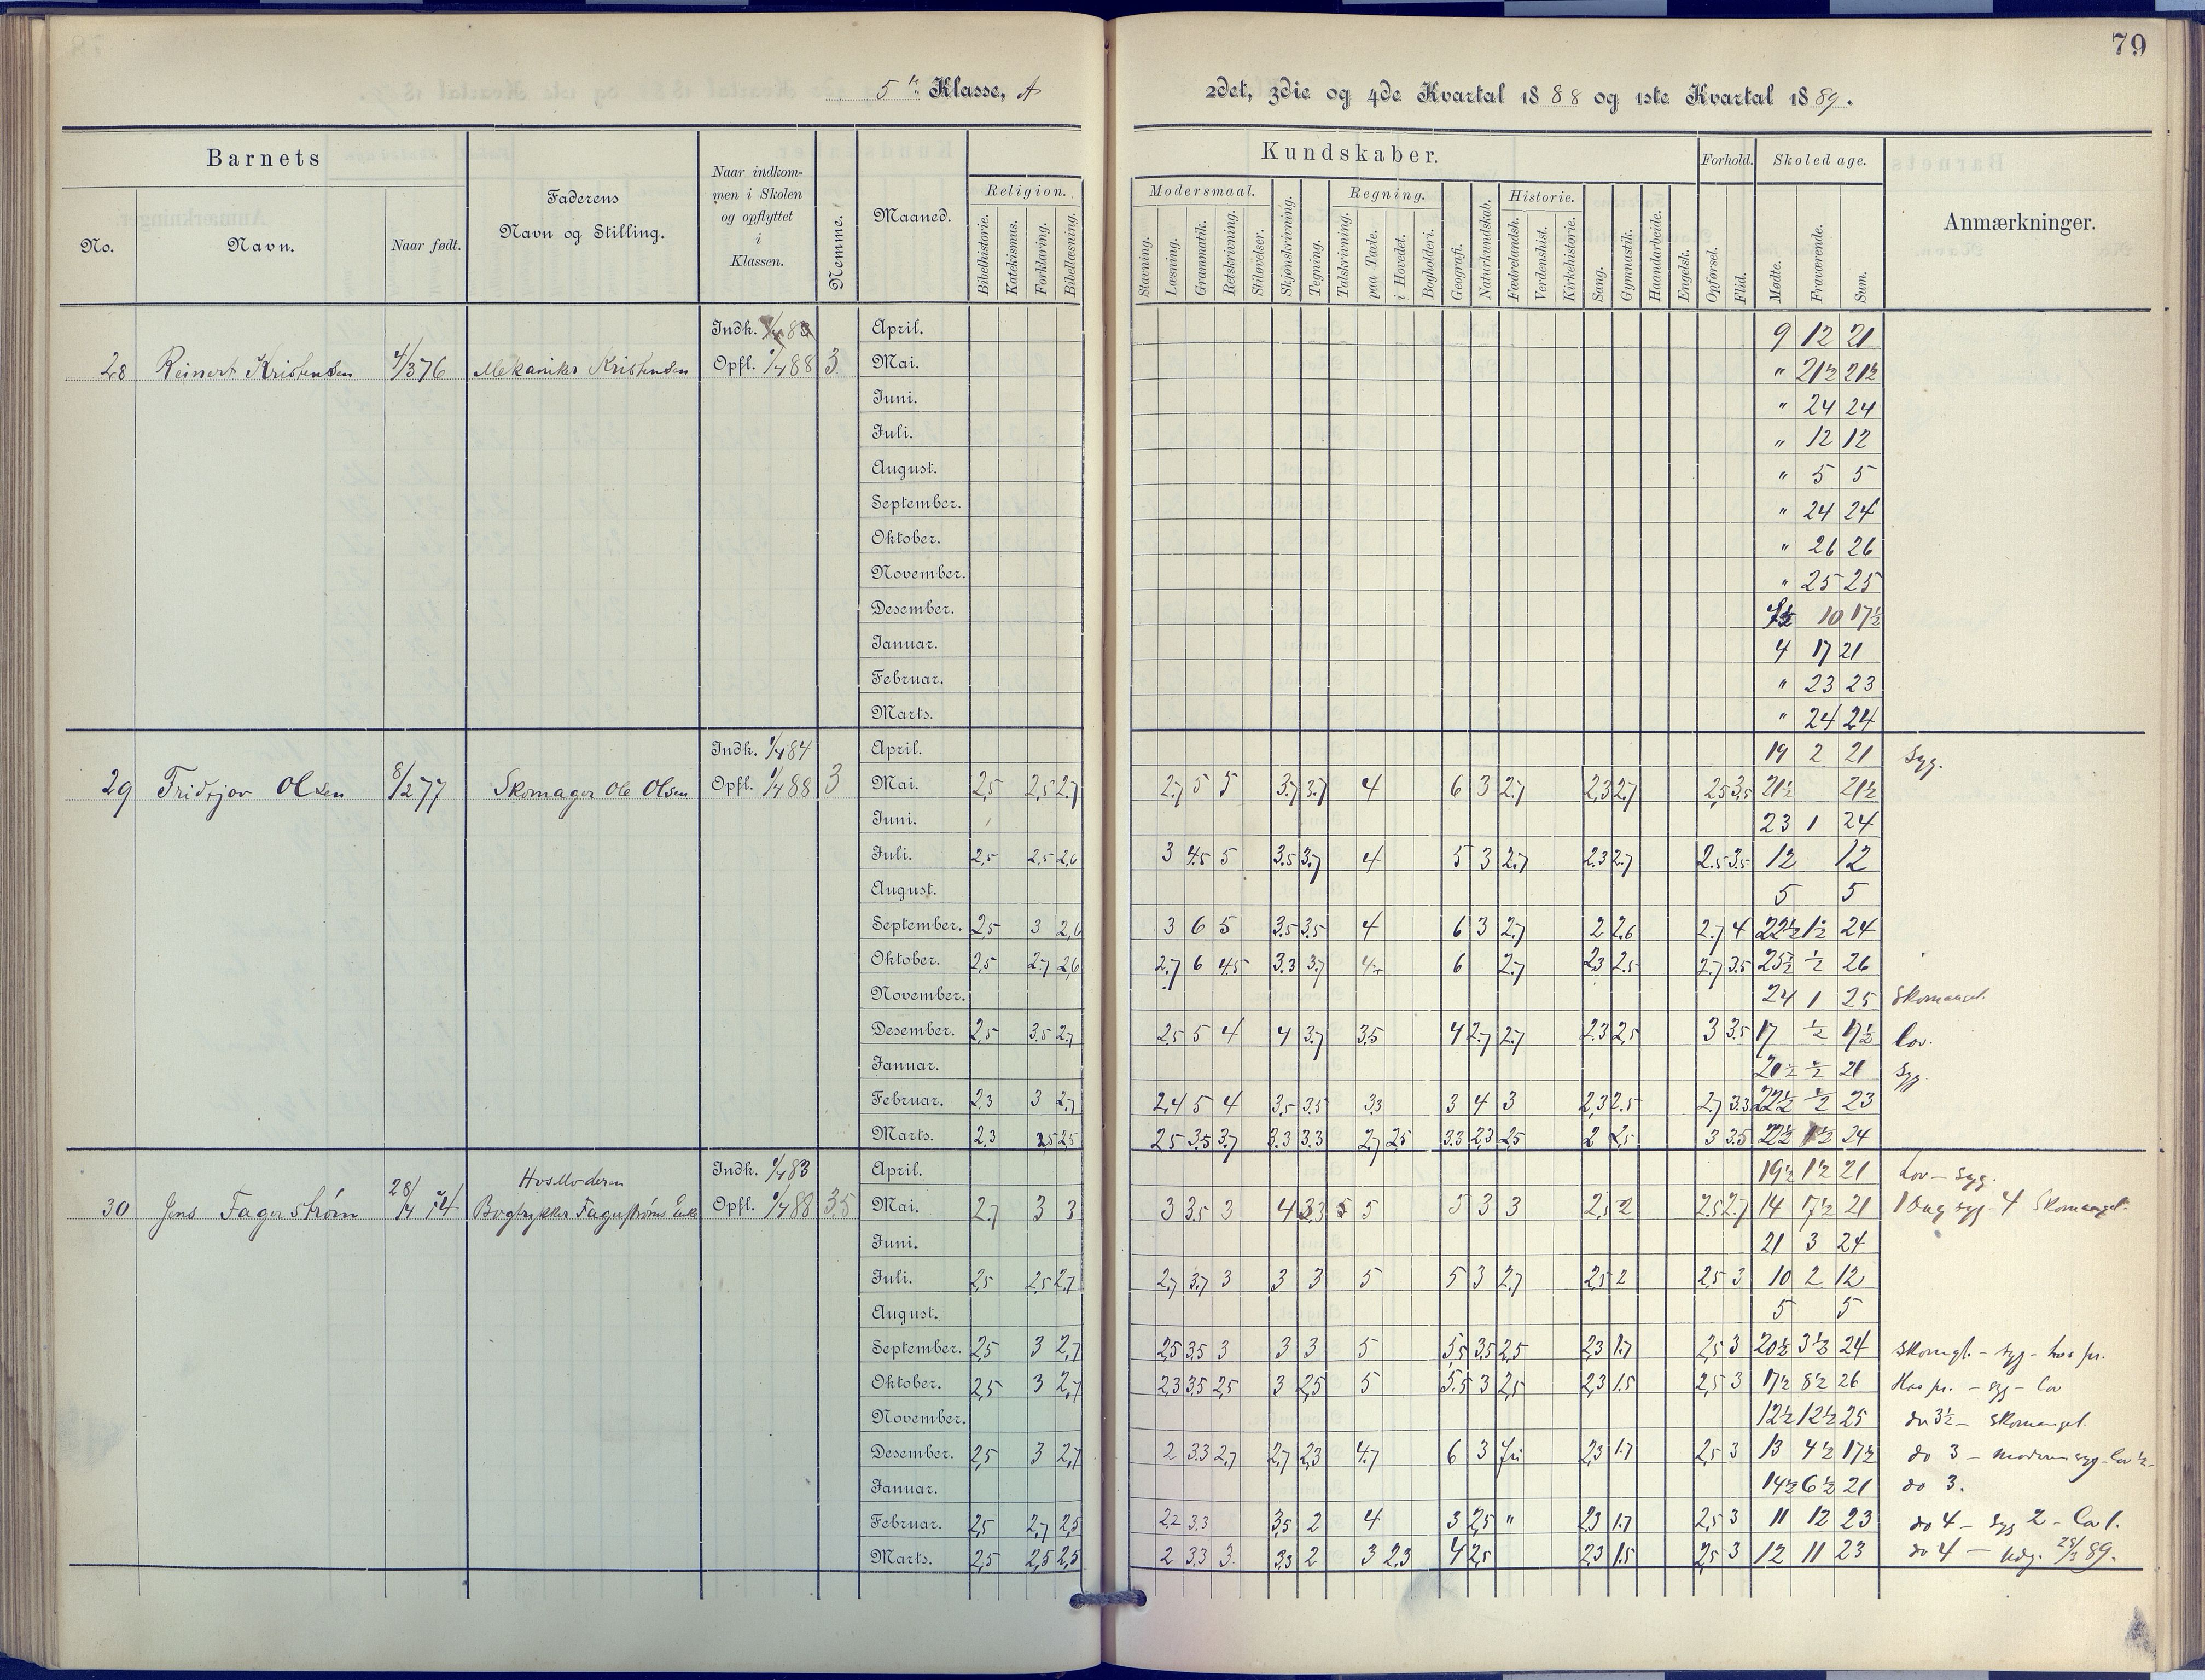 79
5te Klasse, A
2det, 3die og 4de Kvartal 1888 og 1ste Kvartal 1889.
Barnets
No.
Navn.
Naar født.
Faderens
Navn og Stilling.
Naar indkom-
men i Skolen
og opflyttet
i
Klassen.
Nemme.
Maaned.
Kundskaber.
Religion.
Bibelhistorie.
Katekismus.
Forklaring.
Bibellæsning.
Modersmaal.
Stavning.
Læsning.
Grammatik.
Retskrivning.
Stiløvelser.
Skjønskrivning.
Tegning.
Regning.
Talskrivning.
paa Tavle.
i Hovedet.
Bogholderi.
Geografi.
Naturkundskab.
Historie.
Fædrelandsh.
Verdenshist.
Kirkehistorie.
Sang.
Gymnastik.
Haandarbeide.
Engelsk.
Forhold.
Opførsel.
Flid.
Skoledage.
Mødte.
Fraværende.
Sum.
Anmærkninger.
28 Reinert Kristensen 4/3 76 Mekaniker Kristensen
Indk. 1/4 83
Opfl. 1/4 88 3
April. 9 12 21
Mai. " 21½ 21½
Juni. " 24 24
Juli. " 12 12
August. " 5 5
September. " 24 24
Oktober. " 26 26
November. " 25 25
Desember. 7½ 10 17½
Januar. 4 17 21
Februar. " 23 23
Marts. " 24 24
29 Fridtjov Olsen 8/2 77 Skomager Ole Olsen
Indk. 1/4 84
Opfl. 1/4 88 3
April. 19 2 21 Syg.
Mai. 2,5 2,5 2.7 2.7 5 5 3.7 3.7 4 6 3 2.7 2,3 2.7 2,5 3.5 21½ 21½
Juni. 23 1 24
Juli. 2,5 2,5 2,6 3 4.5 5 3.5 3.7 4 5 3 2.7 2.3 2.7 2.5 3.5 12 12
August. 5 5
September. 2,5 3 2,6 3 6 5 3.5 3.5 4 6 3 2.7 2 2.6 2.7 4 22½ 1½ 24
Oktober. 2,5 2.7 2,6 2.7 6 4.5 3.3 3.7 4 6 2.7 2,3 2.5 2.7 3.5 25½ ½ 26
November. 24 1 25 Skomangel.
Desember. 2,5 3.5 2.7 2,5 5 4 4 3.7 3.5 4 2.7 2.7 2.3 2,5 3 3.5 17 ½ 17½ lov.
Januar. 20½ ½ 21 Syg
Februar. 2,3 3 2.7 2,4 5 4 3,5 3.5 3,3 3 4 3 2,3 2.5 2.7 3.3 22½ ½ 23
Marts. 2,3 2,5 2,5 2,5 3.5 3.7 3.3 3.3 2.7 2.5 3.3 2.3 2.5 2 2,5 3 3.5 22½ 1½ 24
30 Jens Fagerstrøm 28/4 74 Hos Moderen
Bogtrykker Fagerstrøms Enke
Indk. 1/4 83
Opfl. 1/4 88 3.5
April. 19½ 1½ 21 Lov – syg.
Mai. 2.7 3 3 3 3.5 3 4 3.3 5 5 5 3 3 2,5 2 2.5 2.7 14 7½ 21 1 Dag syg – 4 Skomangel.
Juni. 21 3 24
Juli. 2,5 2,5 2.7 2.7 3.7 3 3 3 5 5 3 2.7 2,5 2 2,5 3 10 2 12
August. 5 5
September. 2,5 3 2,7 2,5 3.5 3 3 3 5 5,5 3.5 2,5 2,3 1.7 2,5 3 20½ 3½ 24 Skomgl. – syg –
Oktober. 2,5 3 2,7 2,3 3,5 2,5 3 2,5 5 5.5 3 2,5 2,3 1.5 2,5 3 17½ 8½ 26 – syg – lov
November. 12½ 12½ 25 do 3½ – Skomangel.
Desember. 2,5 3 2,7 2 3.3 2,7 2,7 2,3 4.7 6 3 fri 2,3 1.7 2,5 3 13 4½ 17½ do 3 – moderen syg – lov ½
Januar. 14½ 6½ 21 do 3.
Februar. 2,5 2,7 2,5 2,2 3,3 3,5 2 4 3 2,5 " 2,3 1.7 2,5 3 11 12 23 do 4 – syg 2 – lov 1.
Marts. 2,5 2,5 2,5 2 3.3 3. 3,3 2 3 2,3 4 2,5 2,3 1.5 2,5 3 12 11 23 do 4 – Udg. 89.